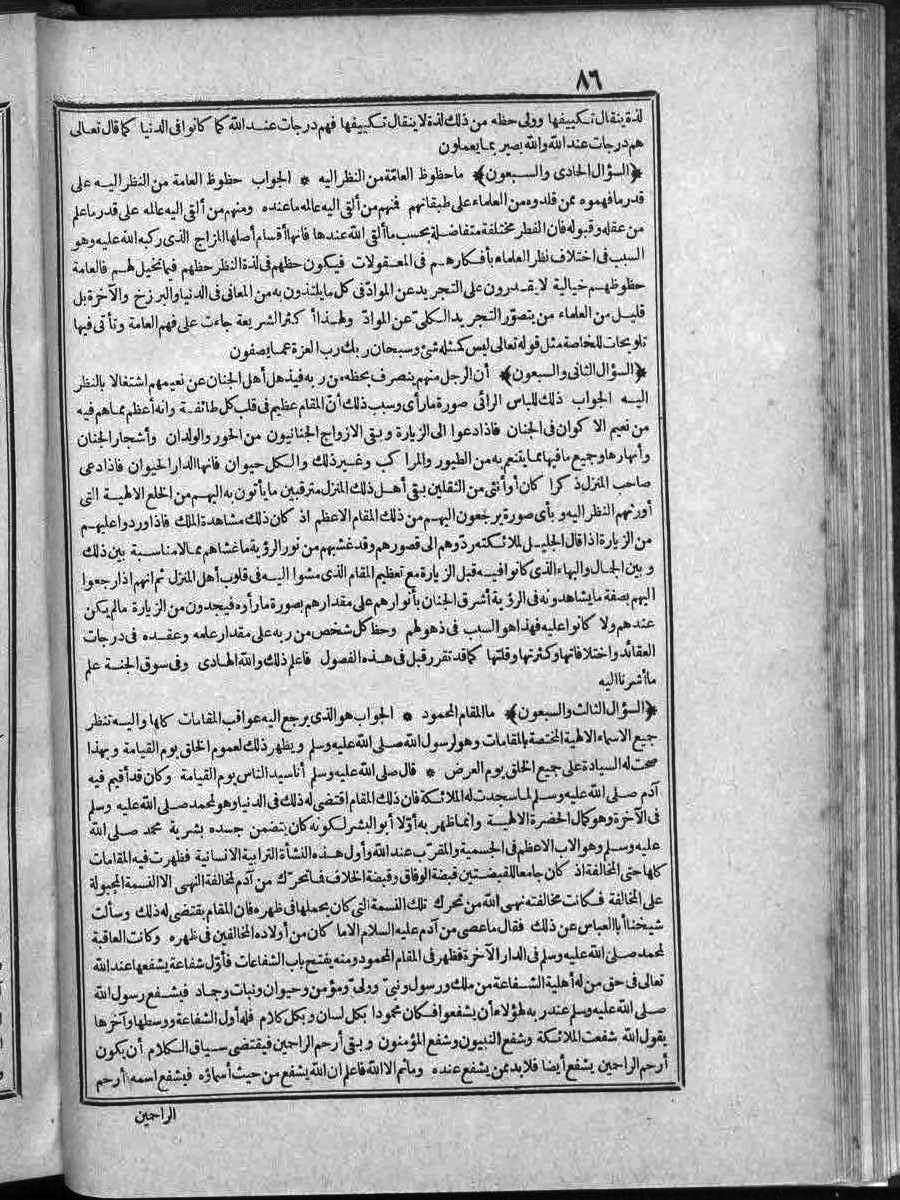 ٨٦
لذة ينقال تكييفها وولى حظه من ذلك لذة لا ينقال تكييفها فهم درجات عند الله كما كانوا فى الدنيا كما قال تعالى
هم درجات عند الله والله بصير بما يعملون
﴿السؤال الحادى والسبعون﴾ ما حظوظ العامّة من النظر اليه * الجواب حظوظ العامة من النظر اليه على
قدر ما فهموه ممن قلدوه من العلماء على طبقاتهم فمنهم من ألقى اليه عالمه ما عنده ومنهم من ألقى اليه عالمه على قدر ما علم
من عقله وقبوله فان الفطر مختلفة متفاضلة بحسب ما ألقى الله عندها فانها أقسام أصلها المزاج الذى ركبه الله عليه وهو
السبب فى اختلاف نظر العلماء بأفكارهم فى المعقولات فيكون حظهم فى لذة النظر حظهم فيما تخيل لهم فالعامة
حظوظهم خيالية لا يقدرون على التجريد عن الموادّ فى كل ما يلتذون به من المعانى فى الدنيا والبرزخ والآخرة بل
قليل من العلماء من يتصوّر التجريد الكلىّ عن الموادّ ولهذا أكثر الشريعة جاءت على فهم العامة وتأتى فيها
تلويحات للخاصة مثل قوله تعالى ليس كمثله شئ وسبحان ربك رب العزة عما يصفون
﴿السؤال الثانى والسبعون﴾ أن الرجل منهم ينصرف بحظه من ربه فيذهل أهل الجنان عن نعيمهم اشتغالا بالنظر
اليه الجواب ذلك للباس الرائى صورة ما رأى وسبب ذلك أنّ المقام عظيم فى قلب كل طائفة وانه أعظم مما هم فيه
من نعيم الاكوان فى الجنان فاذا دعوا الى الزيارة وبقى الازواج الجنانيون من الحور والولدان وأشجار الجنان
وأنهارها وجميع ما فيها مما يتنعم به من الطيور والمراكب وغير ذلك والكل حيوان فانها الدار الحيوان فاذا دعى
صاحب المنزل ذكرا كان أو أنثى من الثقلين بقى أهل ذلك المنزل مترقبين ما يأتون به اليهم من الخلع الالهية التى
أورثهم النظر اليه وبأى صورة يرجعون اليهم من ذلك المقام الاعظم اذ كان ذلك مشاهدة الملك فاذا وردوا عليهم
من الزيارة اذا قال الجليل لملائكته ردّوهم الى قصورهم وقد غشيهم من نور الرؤية ما غشاهم مما لا مناسبة بين ذلك
وبين الجمال والبهاء الذى كانوا فيه قبل الزيارة مع تعظيم المقام الذى مشوا اليه فى قلوب أهل المنزل ثم انهم اذا رجعوا
اليهم بصفة ما يشاهدونه فى الرؤية أشرق الجنان بأنوارهم على مقدارهم بصورة ما رأوه فيجدون من الزيارة ما لم يكن
عندهم ولا كانوا عليه فهذا هو السبب فى ذهولهم وحظ كل شخص من ربه على مقدار علمه وعقده فى درجات
العقائد واختلافاتها وكثرتها وقلتها كما قد تقرر قبل فى هذه الفصول فاعلم ذلك والله الهادى وفى سوق الجنة علم
ما أشرنا اليه
﴿السؤال الثالث والسبعون﴾ ما المقام المحمود * الجواب هو الذى يرجع اليه عواقب المقامات كلها واليه تنظر
جميع الاسماء الالهية المختصة بالمقامات وهو لرسول الله صلى الله عليه وسلم ويظهر ذلك لعموم الخلق يوم القيامة وبهذا
صحت له السيادة على جميع الخلق يوم العرض * قال صلى الله عليه وسلم أنا سيد الناس يوم القيامة وكان قد أقيم فيه
آدم صلى الله عليه وسلم لما سجدت له الملائكة فان ذلك المقام اقتضى له ذلك فى الدنيا وهو لمحمد صلى الله عليه وسلم
فى الآخرة وهو كمال الحضرة الالهية وانما ظهر به أوّلا أبو البشر لكونه كان يتضمن جسده بشرية محمد صلى الله
عليه وسلم وهو الاب الاعظم فى الجسمية والمقرّب عند الله وأول هذه النشأة الترابية الانسانية فظهرت فيه المقامات
كلها حتى المخالفة اذ كان جامعا للقبضتين قبضة الوفاق وقبضة الخلاف فما تحرّك من آدم لمخالفة النهى الا النسمة المجبولة
على المخالفة فكانت مخالفته نهى الله من تحرك تلك النسمة التى كان يحملها فى ظهره فان المقام يقتضى له ذلك وسألت
شيخنا أبا العباس عن ذلك فقال ما عصى من آدم عليه السلام الا ما كان من أولاده المخالفين فى ظهره وكانت العاقبة
لمحمد صلى الله عليه وسلم فى الدار الآخرة فظهر فى المقام المحمود ومنه يفتح باب الشفاعات فأوّل شفاعة يشفعها عند الله
تعالى فى حق من له أهلية الشفاعة من ملك ورسول ونبىّ وولىّ ومؤمن وحيوان ونبات وجماد فيشفع رسول الله
صلى الله عليه وسلم عند ربه لهؤلاء أن يشفعوا فكان محمودا بكل لسان وبكل كلام فله أول الشفاعة ووسطها وآخرها
يقول الله شفعت الملائكة وشفع النبيون وشفع المؤمنون وبقى أرحم الراحمين فيقتضى سياق الكلام أن يكون
أرحم الراحمين يشفع أيضا فلا بد ممن يشفع عنده وما ثم الا الله فاعلم ان الله يشفع من حيث أسماؤه فيشفع اسمه أرحم
الراحمين